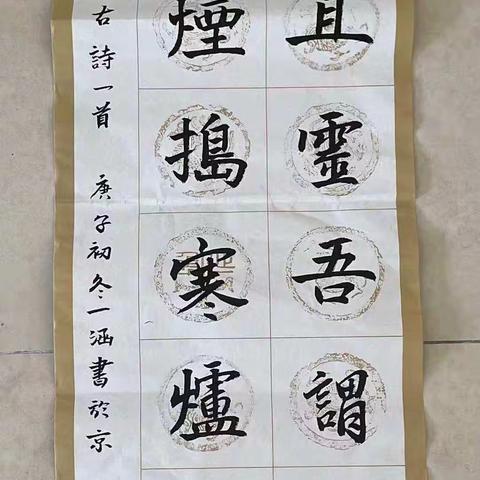 靈吾謂
煙搗寒爐
古詩一首 庚子初冬一涵書於京